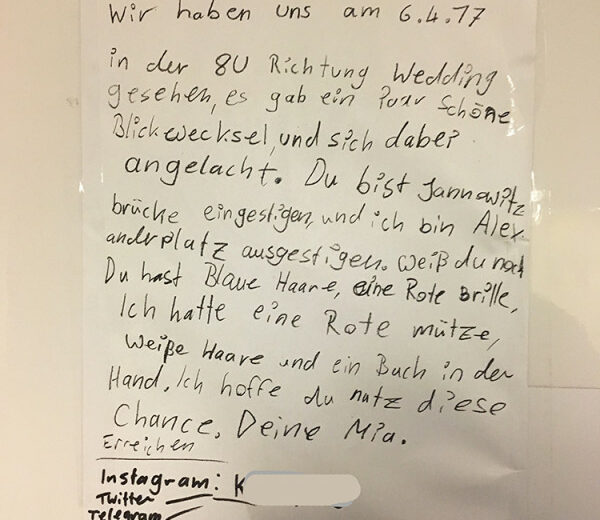 Wir haben uns am 6.4.17
in der 8U Richtung Wedding
gesehen, es gab ein paar Schöne
Blickwecksel, und sich dabei
angelacht. Du bist Jannowitz
brücke eingestigen, und ich bin Alex
anderplatz ausgestigen. Weiß du noch
Du hast Blaue Haare, eine Rote Brille,
Ich hatte eine Rote mütze,
Weiße Haare und ein Buch in der
Hand. Ich hoffe du nutz diese
Chance. Deine Mia.
Erreichen
Instagram: K
Twitter
Telegram